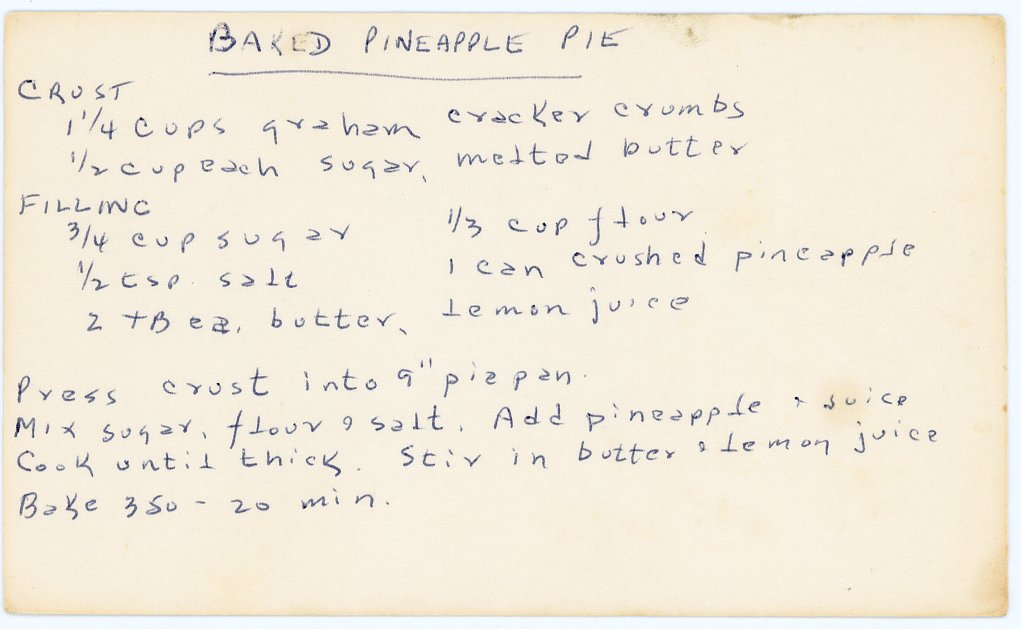 BAKED PINEAPPLE PIE
CRUST
1 1/4 cups graham cracker crumbs
1/2 cup each sugar, melted butter
FILLING
3/4 cup sugar 1/3 cup flour
1/2 tsp. salt 1 can crushed pineapple
2 TB ea. butter, lemon juice
Press crust into 9" pie pan.
Mix sugar, flour & salt. Add pineapple & juice
Cook until thick. Stir in butter & lemon juice
Bake 350 - 20 min.